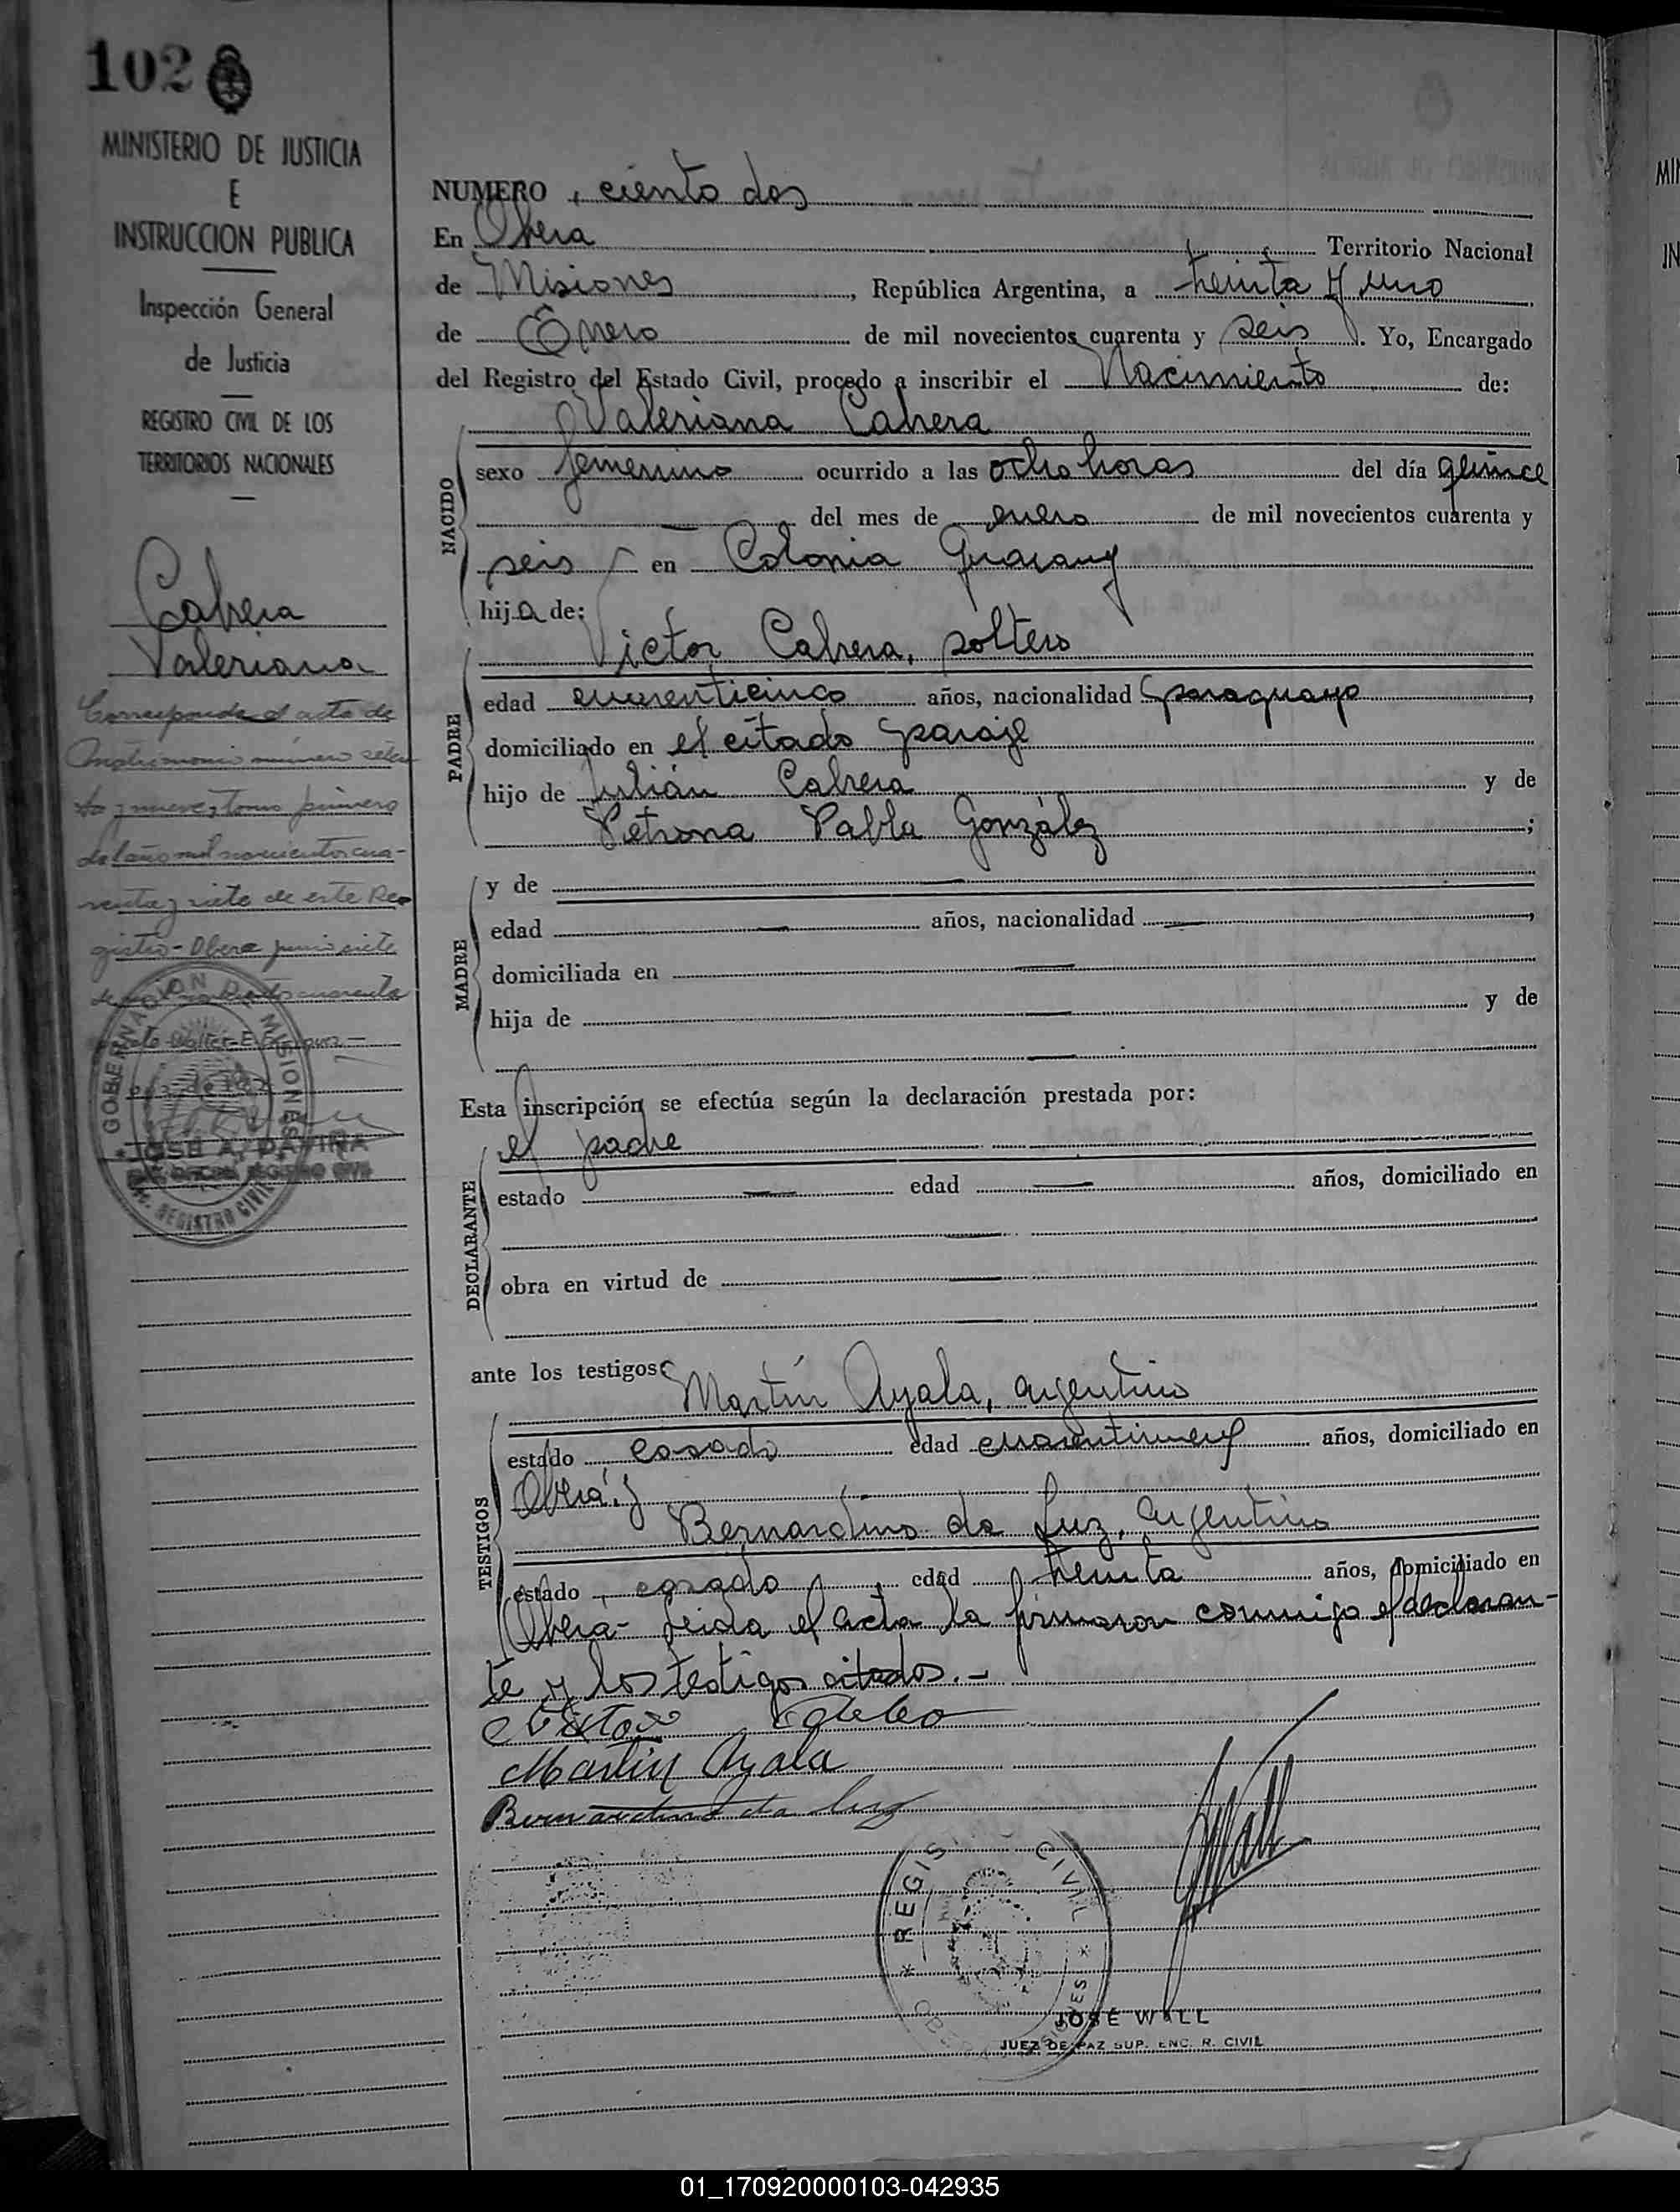 102
MINISTERIO DE JUSTICIA
E
INSTRUCCION PUBLICA
Inspección General
de Justicia
REGISTRO CIVIL DE LOS
TERRITORIOS NACIONALES
Cabrera
Valeriana
Corresponde el acta de
matrimonio número seten
ta y nueve, tomo primero
del año mil novecientos cua-
renta y siete de este Re
gistro - Obera junio siete
de mil novecientos cuarenta
GOBERNACION MISIONES
REGISTRO CIVIL
JOSE A. DAVIÑA
REGISTRO CIVIL
NUMERO ciento dos
En Obera Territorio Nacional
de Misiones, República Argentina, a treinta y uno
de Enero de mil novecientos cuarenta y seis. Yo, Encargado
del Registro del Estado Civil, procedo a inscribir el Nacimiento de:
Valeriana Cabrera
NACIDO
sexo femenino ocurrido a las ocho horas del día quince
del mes de enero de mil novecientos cuarenta y
seis en Colonia Guarany
hija de:
Victor Cabrera, soltero
PADRE
edad cuarenticinco años, nacionalidad paraguayo,
domiciliado en el citado paraje
hijo de Julián Cabrera y de
Petrona Pabla González;
MADRE
y de —
edad — años, nacionalidad —,
domiciliada en —
hija de — y de
—
Esta inscripción se efectúa según la declaración prestada por:
el padre
DECLARANTE
estado — edad — años, domiciliado en
—
obra en virtud de —
—
ante los testigos:
Martín Ayala, argentino
TESTIGOS
estado casado edad cuarentinueve años, domiciliado en
Oberá y
Bernardino da Luz, argentino
estado casado, edad treinta años, domiciliado en
Obera- Leida el acta la firmaron conmigo el declaran-
te y los testigos citados.-
Martin Ayala
Bernardino da Luz
REGIS CIVIL
JOSÉ WALL
JUEZ DE PAZ SUP. ENC. R. CIVIL
01_170920000103-042935